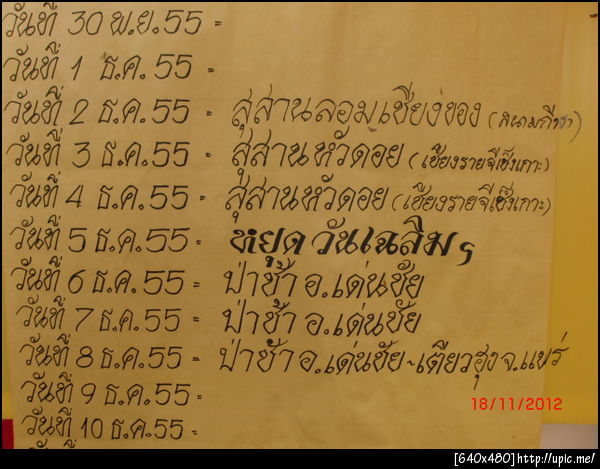 วันที่ 30 พ.ย. 55 =
วันที่ 1 ธ.ค. 55 =
วันที่ 2 ธ.ค. 55 = สุสานลอมเชียงของ (สนามกีฬา)
วันที่ 3 ธ.ค. 55 = สุสานหัวดอย (เชียงรายจีเซ็งเกาะ)
วันที่ 4 ธ.ค. 55 = สุสานหัวดอย (เชียงรายจีเซ็งเกาะ)
วันที่ 5 ธ.ค. 55 = หยุด วันเฉลิมฯ
วันที่ 6 ธ.ค. 55 = ป่าช้า อ.เด่นชัย
วันที่ 7 ธ.ค. 55 = ป่าช้า อ.เด่นชัย
วันที่ 8 ธ.ค. 55 = ป่าช้า อ.เด่นชัย~เตียวฮุง จ.แพร่
วันที่ 9 ธ.ค. 55 =
วันที่ 10 ธ.ค. 55 =
18/11/2012
[640x480]http://upic.me/